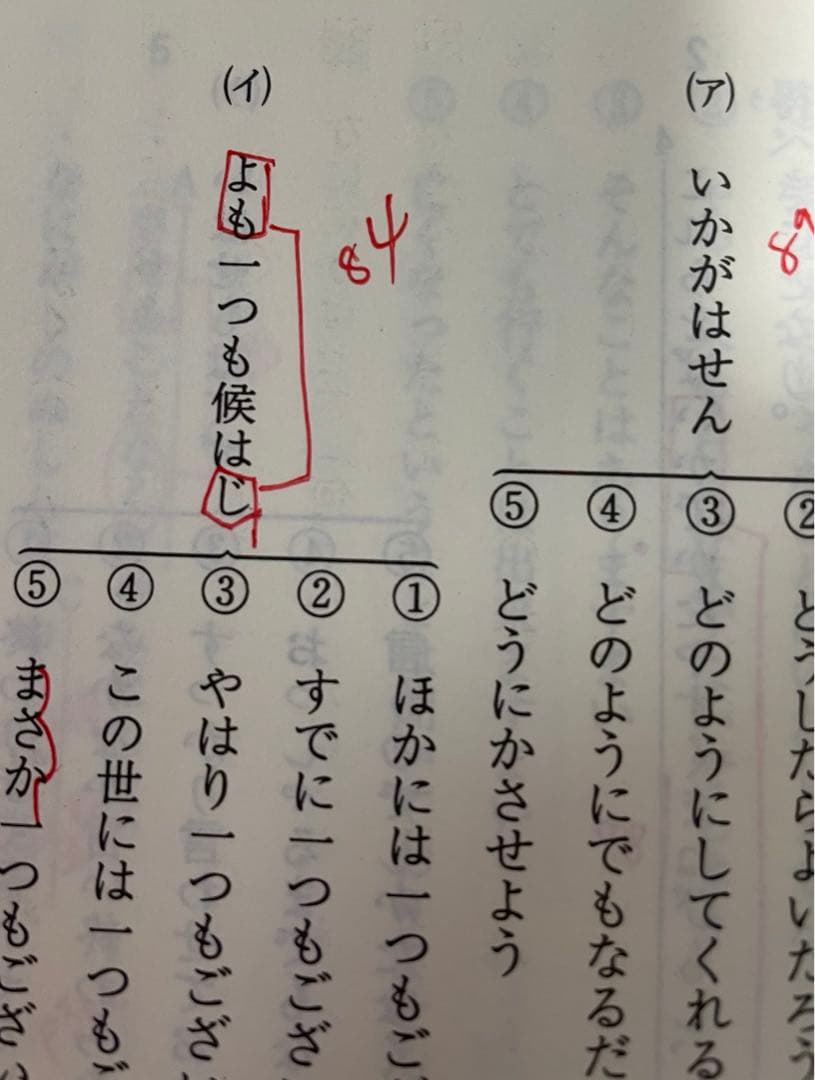 (ア) いかがはせん
②
③ どのようにしてくれる
④ どのようにでもなるだ
⑤ どうにかさせよう
(イ) よも一つも候はじ
84
① ほかには一つもご
② すでに一つもござ
③ やはり一つもござ
④ この世には一つもご
⑤ まさか一つもござい